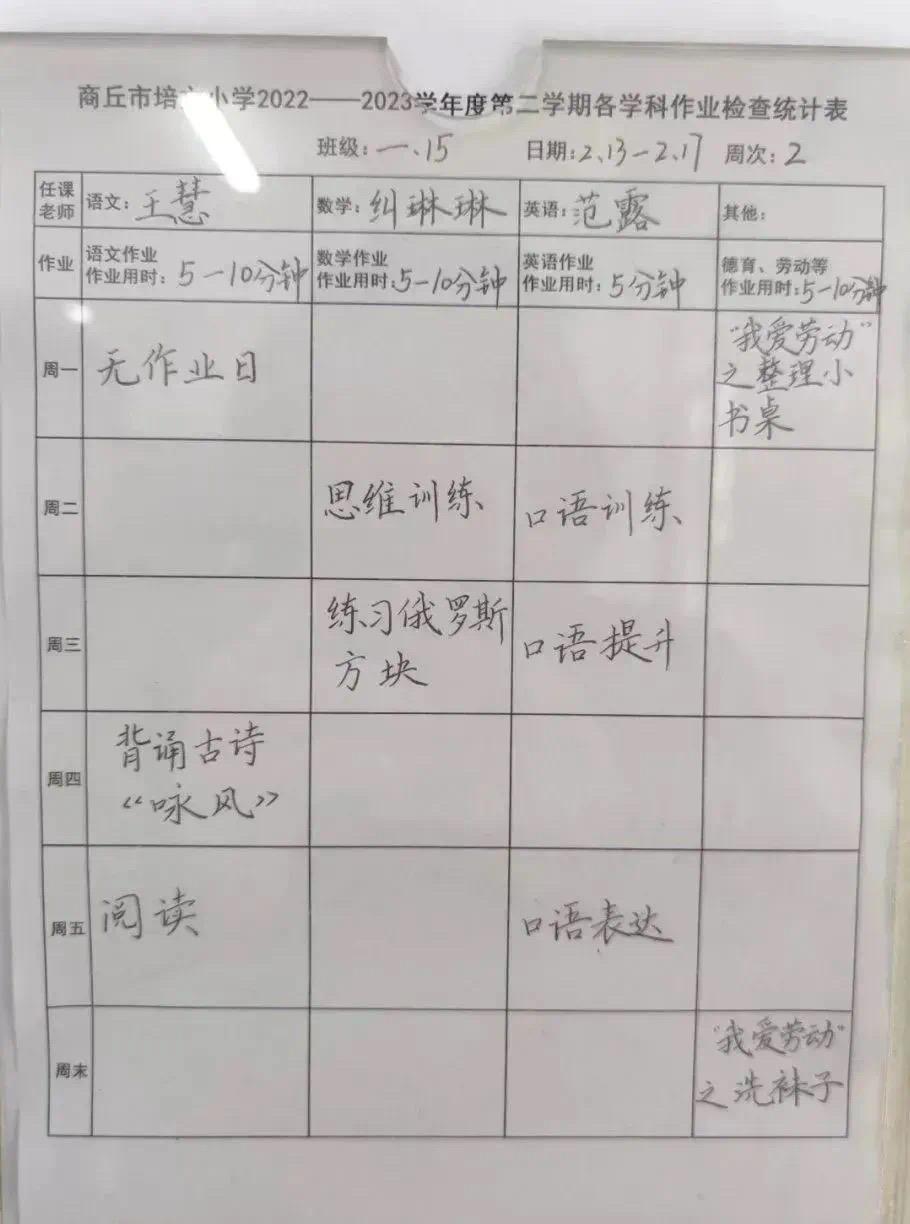 商丘市培 小学2022——2023学年度第二学期各学科作业检查统计表
班级:一.15 日期:2.13-2.17 周次:2
任课老师 语文:王慧 数学:纠琳琳 英语:范露 其他:
作业 语文作业 数学作业 英语作业 德育、劳动等
作业用时:5-10分钟 作业用时:5-10分钟 作业用时:5分钟 作业用时:5-10分钟
周一 无作业日 “我爱劳动”
之整理小
书桌
周二 思维训练 口语训练
周三 练习俄罗斯 口语提升
方块
周四 背诵古诗
《咏风》
周五 阅读 口语表达
周末 “我爱劳动”
之洗袜子